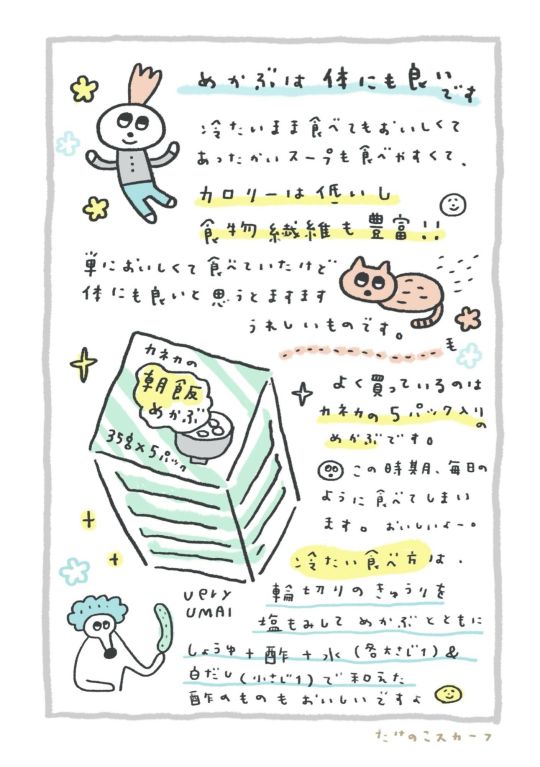 めかぶは 体にも良い
です
冷たいまま食べてもおいしくて
あったかいスープも食べやすくて、
カロリーは低いし
食物繊維も豊富!!
単においしくて食べていたけど
体にも良いと思うとますます
うれしいものです。
カネカの
朝飯
めかぶ
35g×5パック
よく買っているのは
カネカの5パック入りの
めかぶです。
この時期、毎日の
ように食べてしまい
ます。おいしいよー。
冷たい食べ方は、
輪切りのきゅうりを
塩もみしてめかぶとともに
しょうゆ+酢+水(各大さじ1)&
白だし(小さじ1)で和えた
酢のものもおいしいですよ
very
UMAI
たけのこスカーフ